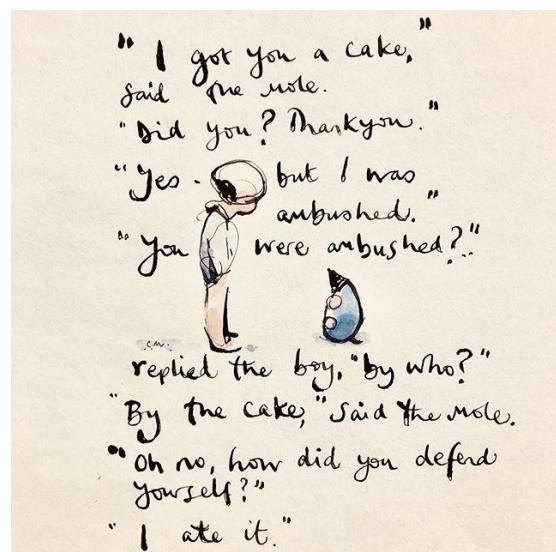 " I got you a cake,"
said the mole.
"Did you? Thankyou."
"Yes - but I was
ambushed."
"You were ambushed?"
c.m.
replied the boy, "by who?"
"By the cake," said the mole.
"Oh no, how did you defend
yourself?"
" I ate it."